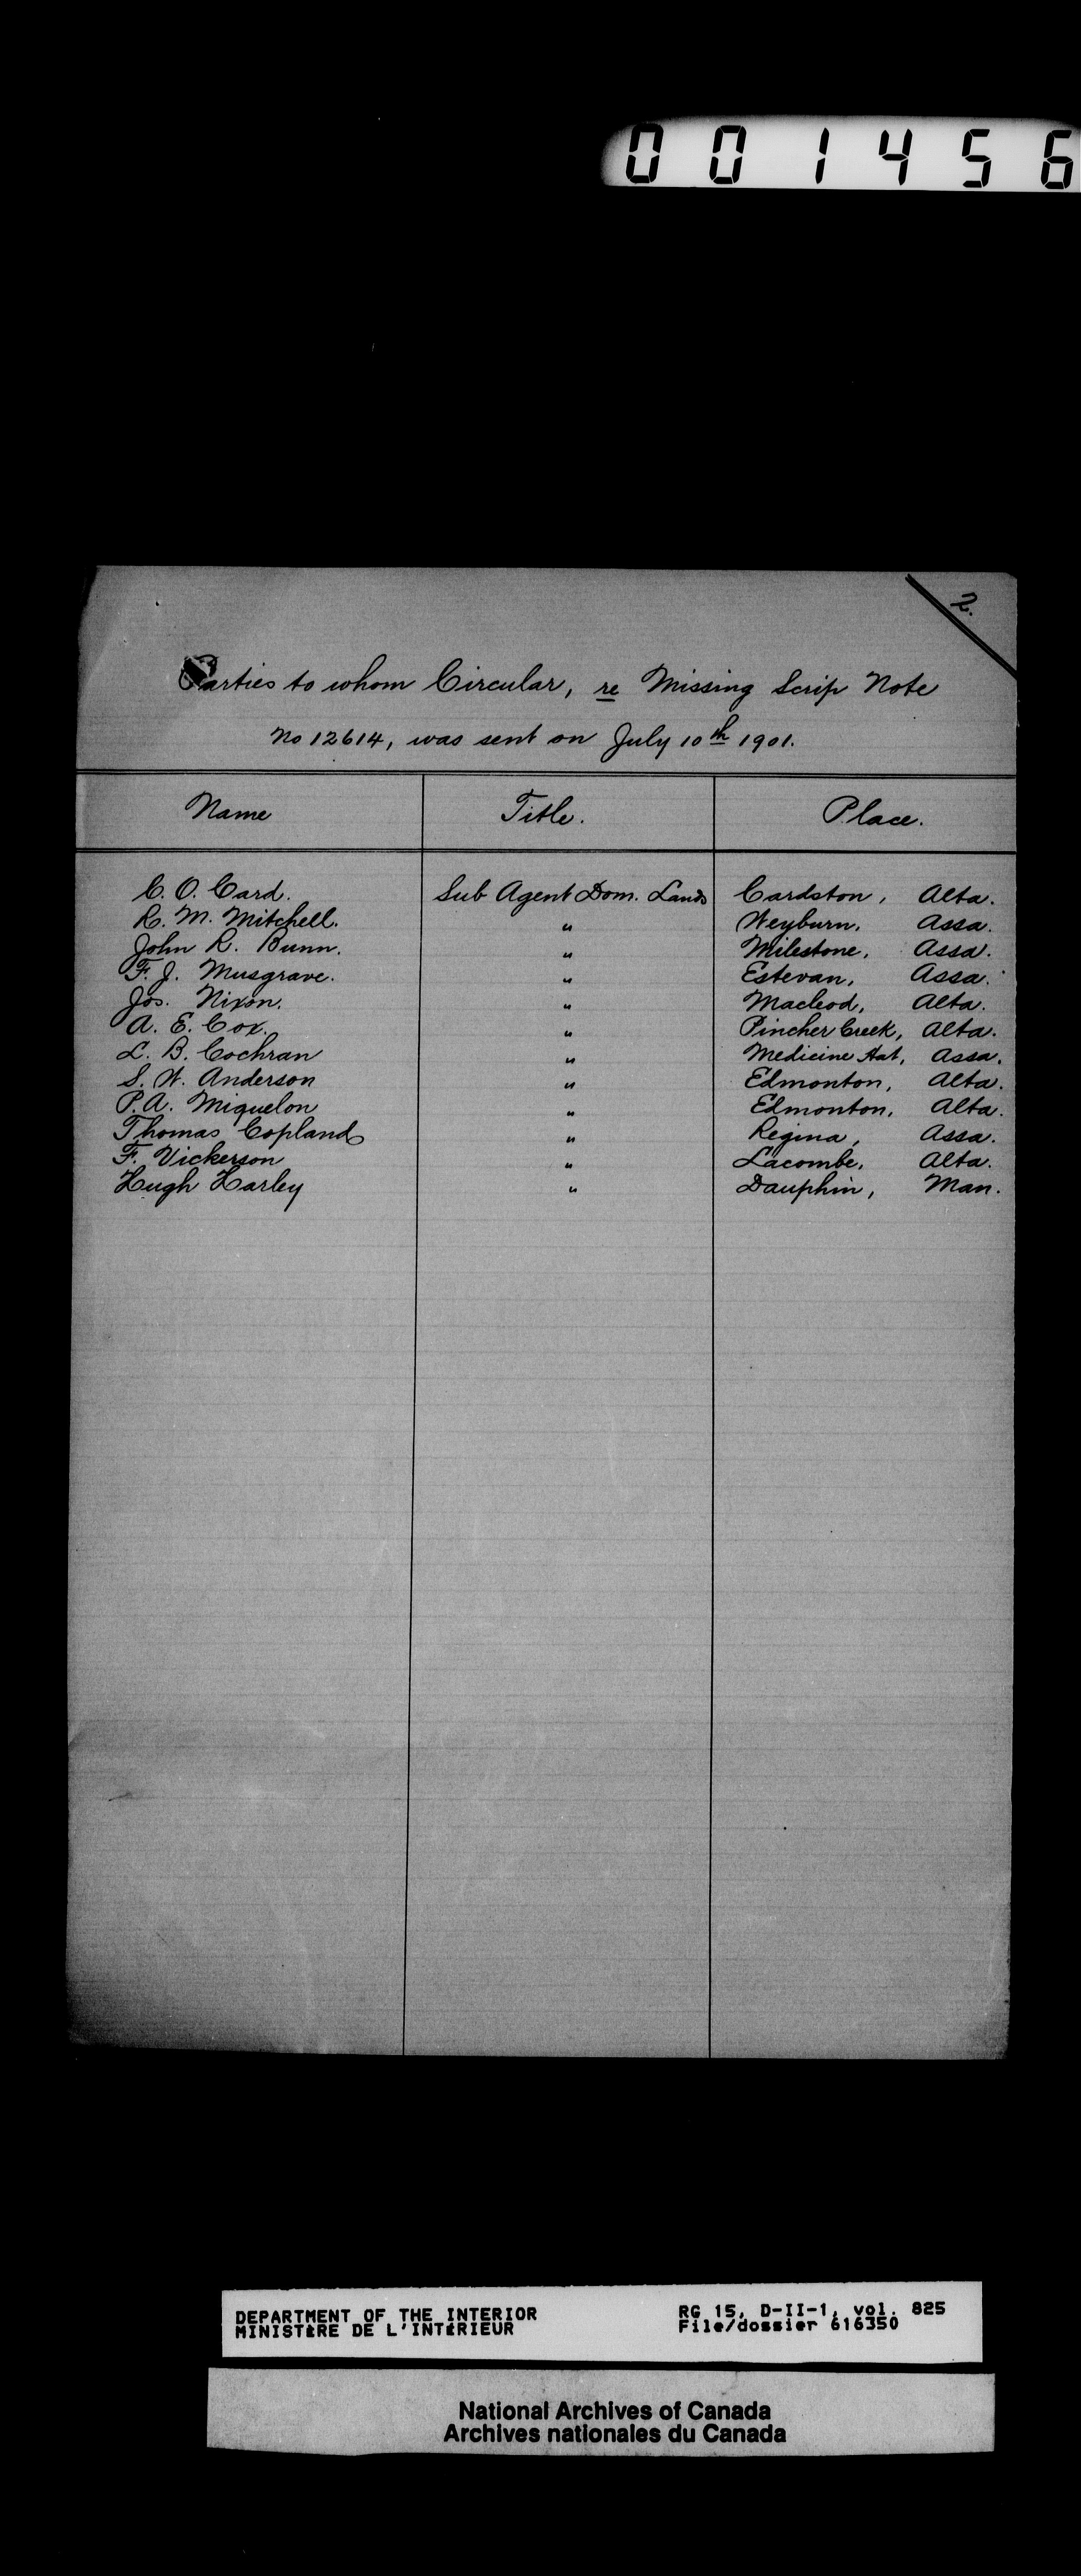 001456
2.
Parties to whom Circular, re Missing Scrip Note
No 12614, was sent on July 10th 1901.
Name Title. Place.
C. O. Card. Sub Agent Dom. Lands Cardston, Alta.
R. M. Mitchell. " Weyburn, Assa.
John R. Bunn. " Milestone, Assa.
F. J. Musgrave. " Estevan, Assa.
Jos. Nixon. " Macleod, Alta.
A. E. Cox. " Pincher Creek, Alta.
L. B. Cochran " Medicine Hat, Assa.
S. W. Anderson " Edmonton, Alta.
P. A. Miquelon " Edmonton, Alta.
Thomas Copland " Regina, Assa.
F. Vickerson " Lacombe, Alta.
Hugh Harley " Dauphin, Man.
DEPARTMENT OF THE INTERIOR RG 15, D-II-1, vol. 825
MINISTÈRE DE L'INTÉRIEUR File/dossier 616350
National Archives of Canada
Archives nationales du Canada